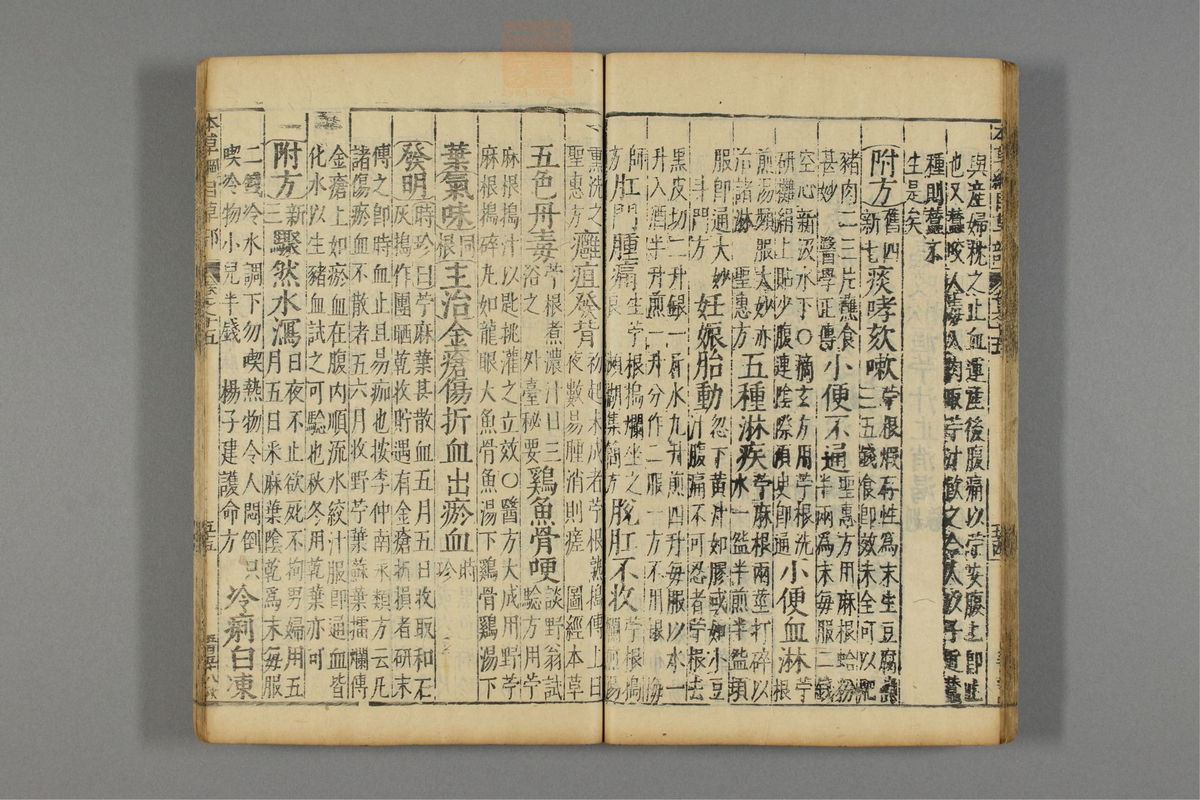 與產婦枕之止血運產後腹痛以苧安腹上即止
也又蠶咬人毒入肉取苧汁飲之今人以苧近蠶
種則蠶不
生是矣
附方舊四新七痰哮欬嗽苧根煅存性為末生豆腐蘸三五錢食即效未全可以肥
豬肉二三片蘸食甚妙醫學正傳小便不通聖惠方用麻根蛤粉半兩為末每服二錢
空心新汲水下○摘玄方用苧根洗研攤絹上貼少腹連陰際須史即通小便血淋苧根
煎湯頻服大妙亦治諸淋聖惠方五種淋疾苧麻根兩莖打碎以水一盌半煎半盌頓
服即通大妙斗門方妊娠胎動忽下黃汁如膠或如小豆汁腹痛不可忍者苧根去
黑皮切二升銀一斤水九升煎四升每服以水一升入酒半升煎一升分作二服一方不用銀梅
師肛門腫痛生苧根搗爛坐之瀕湖集簡方脫肛不收苧根搗爛
熏洗之聖惠方癰疽發背初起未成者苧根熟搗傅上日夜數易腫消則瘥圖經本草
五色丹毒苧根煮濃汁日三浴之外臺秘要鷄魚骨哽談野翁試驗方用苧
麻根搗汁以匙挑灌之立效○醫方大成用野苧麻根搗碎丸如龍眼大魚骨魚湯下鷄骨鷄湯下
葉氣味同根主治金瘡傷折血出瘀血時珍
發明時珍曰苧麻葉甚散血五月五日收取和石灰搗作團晒乾收貯遇有金瘡折損者研末
傅之即時血止且易痂也按李仲南永類方云凡諸傷瘀血不散者五六月收野苧葉蘇葉擂爛傅
金瘡上如瘀血在腹內順流水絞汁服即通血皆化水以生豬血試之可驗也秋冬用乾葉亦可
附方新三驟然水瀉日夜不止欲死不拘男婦用五月五日采麻葉陰乾為末每服
二錢冷水調下勿喫熱物令人悶倒只喫冷物小兒半錢楊子建護命方冷痢白凍